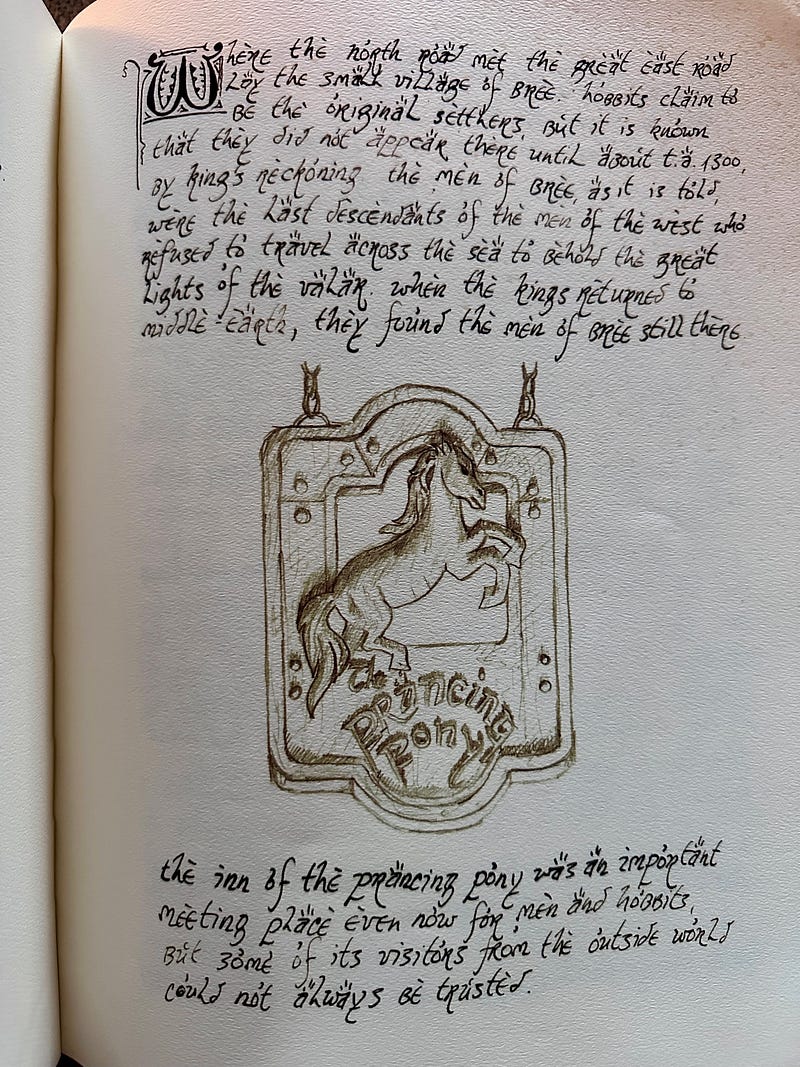 Where the north road met the great east road
lay the small village of Bree. hobbits claim to
be the original settlers, but it is known
that they did not appear there until about t.a. 1300,
by king's reckoning the men of Bree, as it is told,
were the last descendants of the men of the west who
refused to travel across the sea to behold the great
lights of the valar. when the kings returned to
middle-earth, they found the men of Bree still there
the
prancing
pony
the inn of the prancing pony was an important
meeting place even now for men and hobbits,
but some of its visitors from the outside world
could not always be trusted.